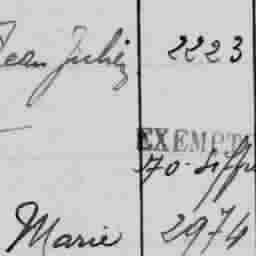 Jean Julien 2223
EXEMPT
70.
Marie 2974